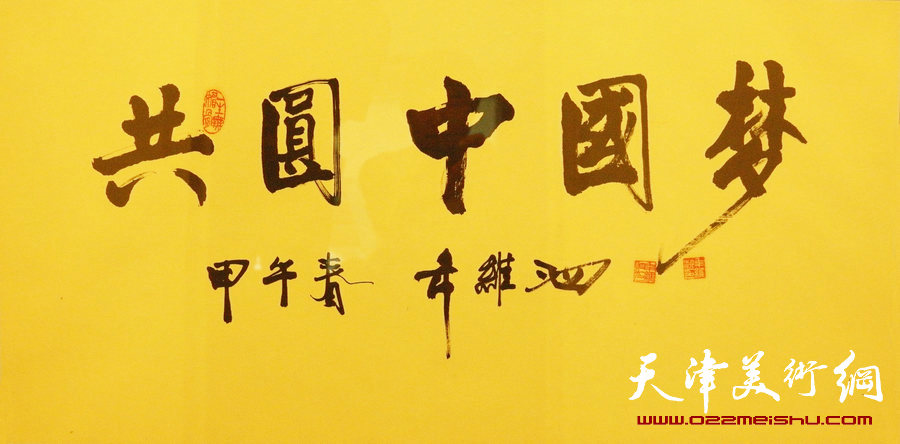 共圓中國梦
甲午春 維泗
天津美術網
www.022meishu.com